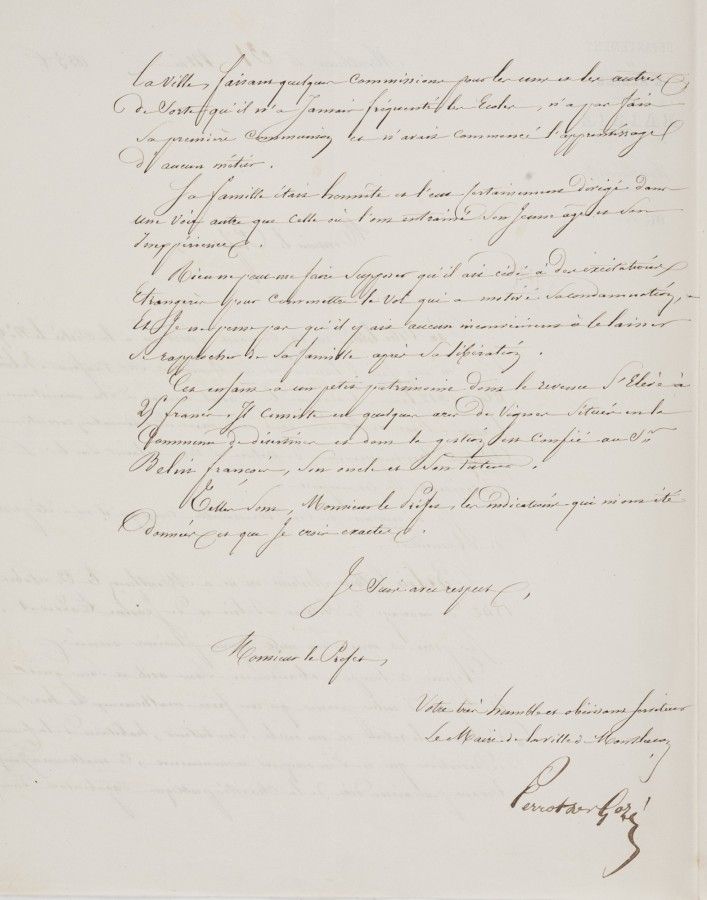 la ville, faisant quelques commissions pour les uns et les autres
de sorte qu'il n'a jamais fréquenté les Ecoles, n'a pas fait
sa première Communion et n'avait commencé l'apprentissage
d'aucun métier.
Sa famille était honnête et l'eut certainement dirigé dans
une voie autre que celle où l'ont entrainé son jeune âge et son
inexpérience.
Rien ne peut me faire supposer qu'il ait cédé à des excitations
Etrangères pour commettre le vol qui a motivé sa condamnation,
Et je ne pense pas qu'il y ait aucun inconvénient à le laisser
se rapprocher de sa famille après sa libération.
Cet enfant a un petit patrimoine dont le revenu s'Elève à
25 francs. Il consiste en quelques ares de Vignes situés en la
Commune de et dont la gestion est confiée au Sr
Belin françois, son oncle et son tuteur.
Telles sont, Monsieur le Préfet, les indications qui m'ont été
données et que je crois exactes.
Je suis avec respect,
Monsieur le Préfet,
Votre très humble et obéissant serviteur
Le Maire de la ville de Montluçon